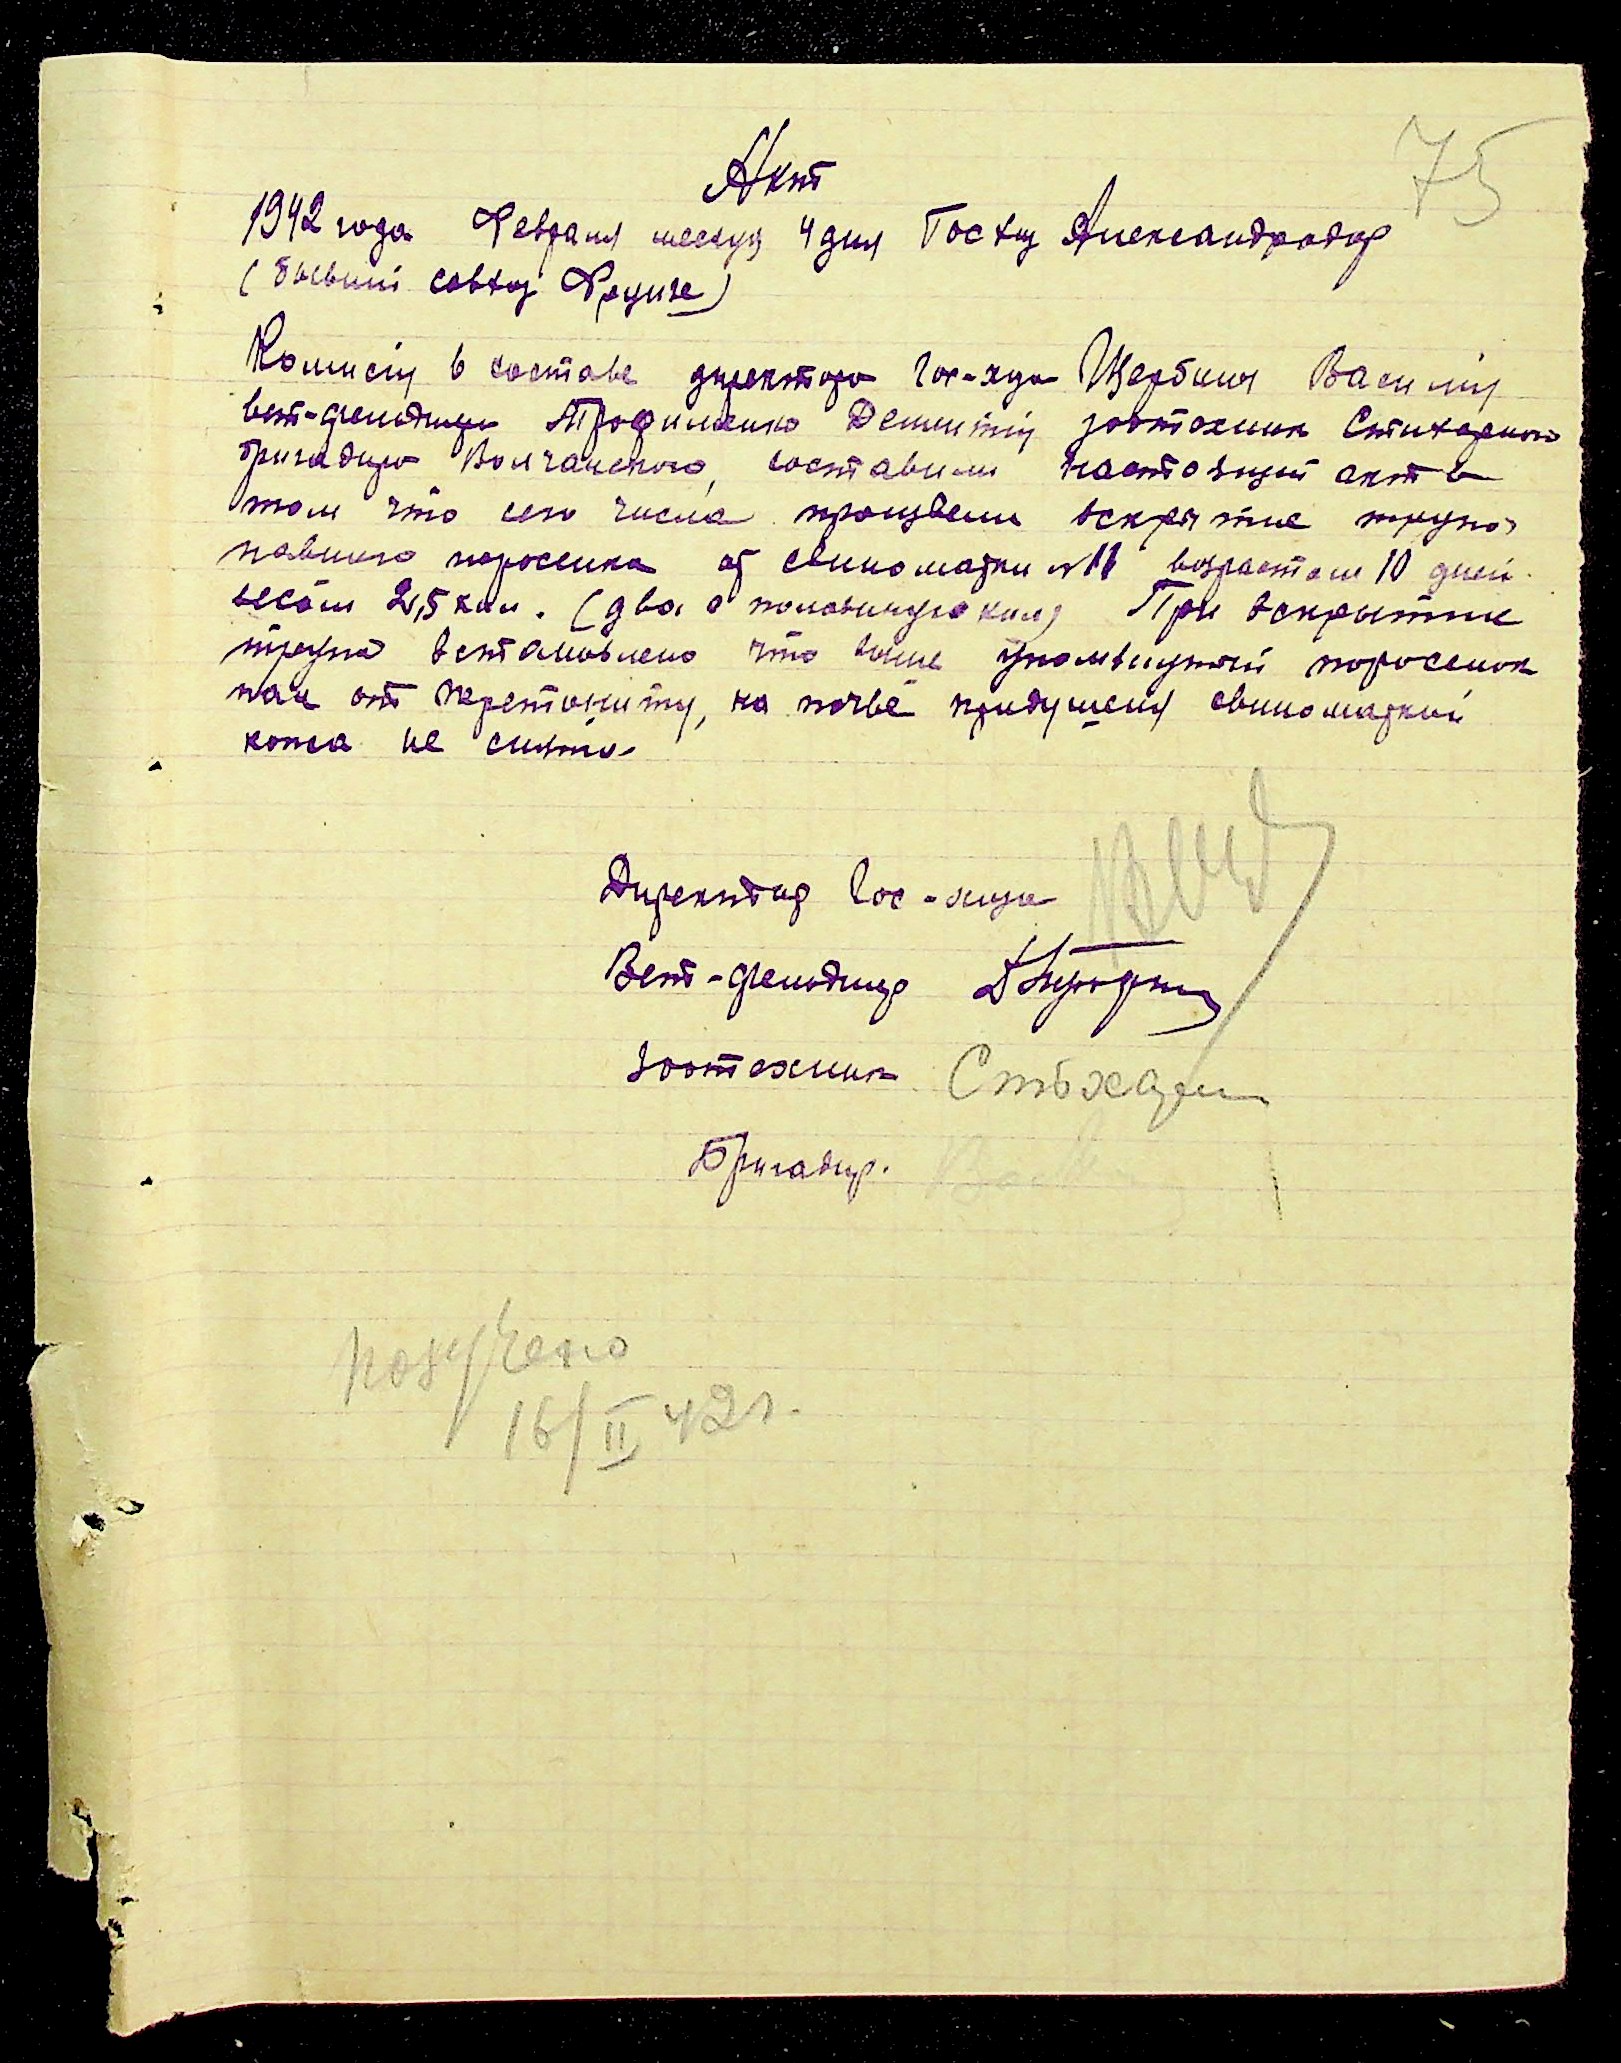 75
Акт
1942 года Февраля месяця 4 дня Госхоз Александродар
(бывший совхоз Фрунзе)
Комисия в составе директора Гос-хоза Щербина Василия
вет-фельдшера Трофименко Дементия зоотехник Стихарного
бригадира Волчанского, составили настоящий акт в
том что сего числа произвели вскрытие трупа
павшего поросенка от свиноматки №11 возрастом 10 дней
весом 2,5 кил. (два с половиную кил) При вскрытие
трупа встановлено что выше упомянутый поросенок
пал от перетониту, на почве придушения свиноматкой
кожа не снята.
Директор Гос-хоза
Вет-фельдшер
Зоотехник
Бригадир.
получено
16/II 42 г.